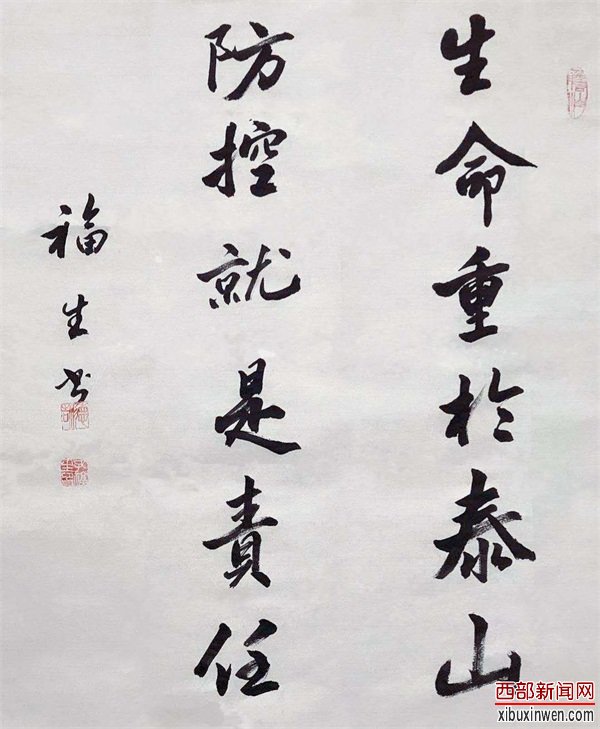 生命重於泰山
防控就是責任
福生书
西部新闻网
xibuxinwen.com